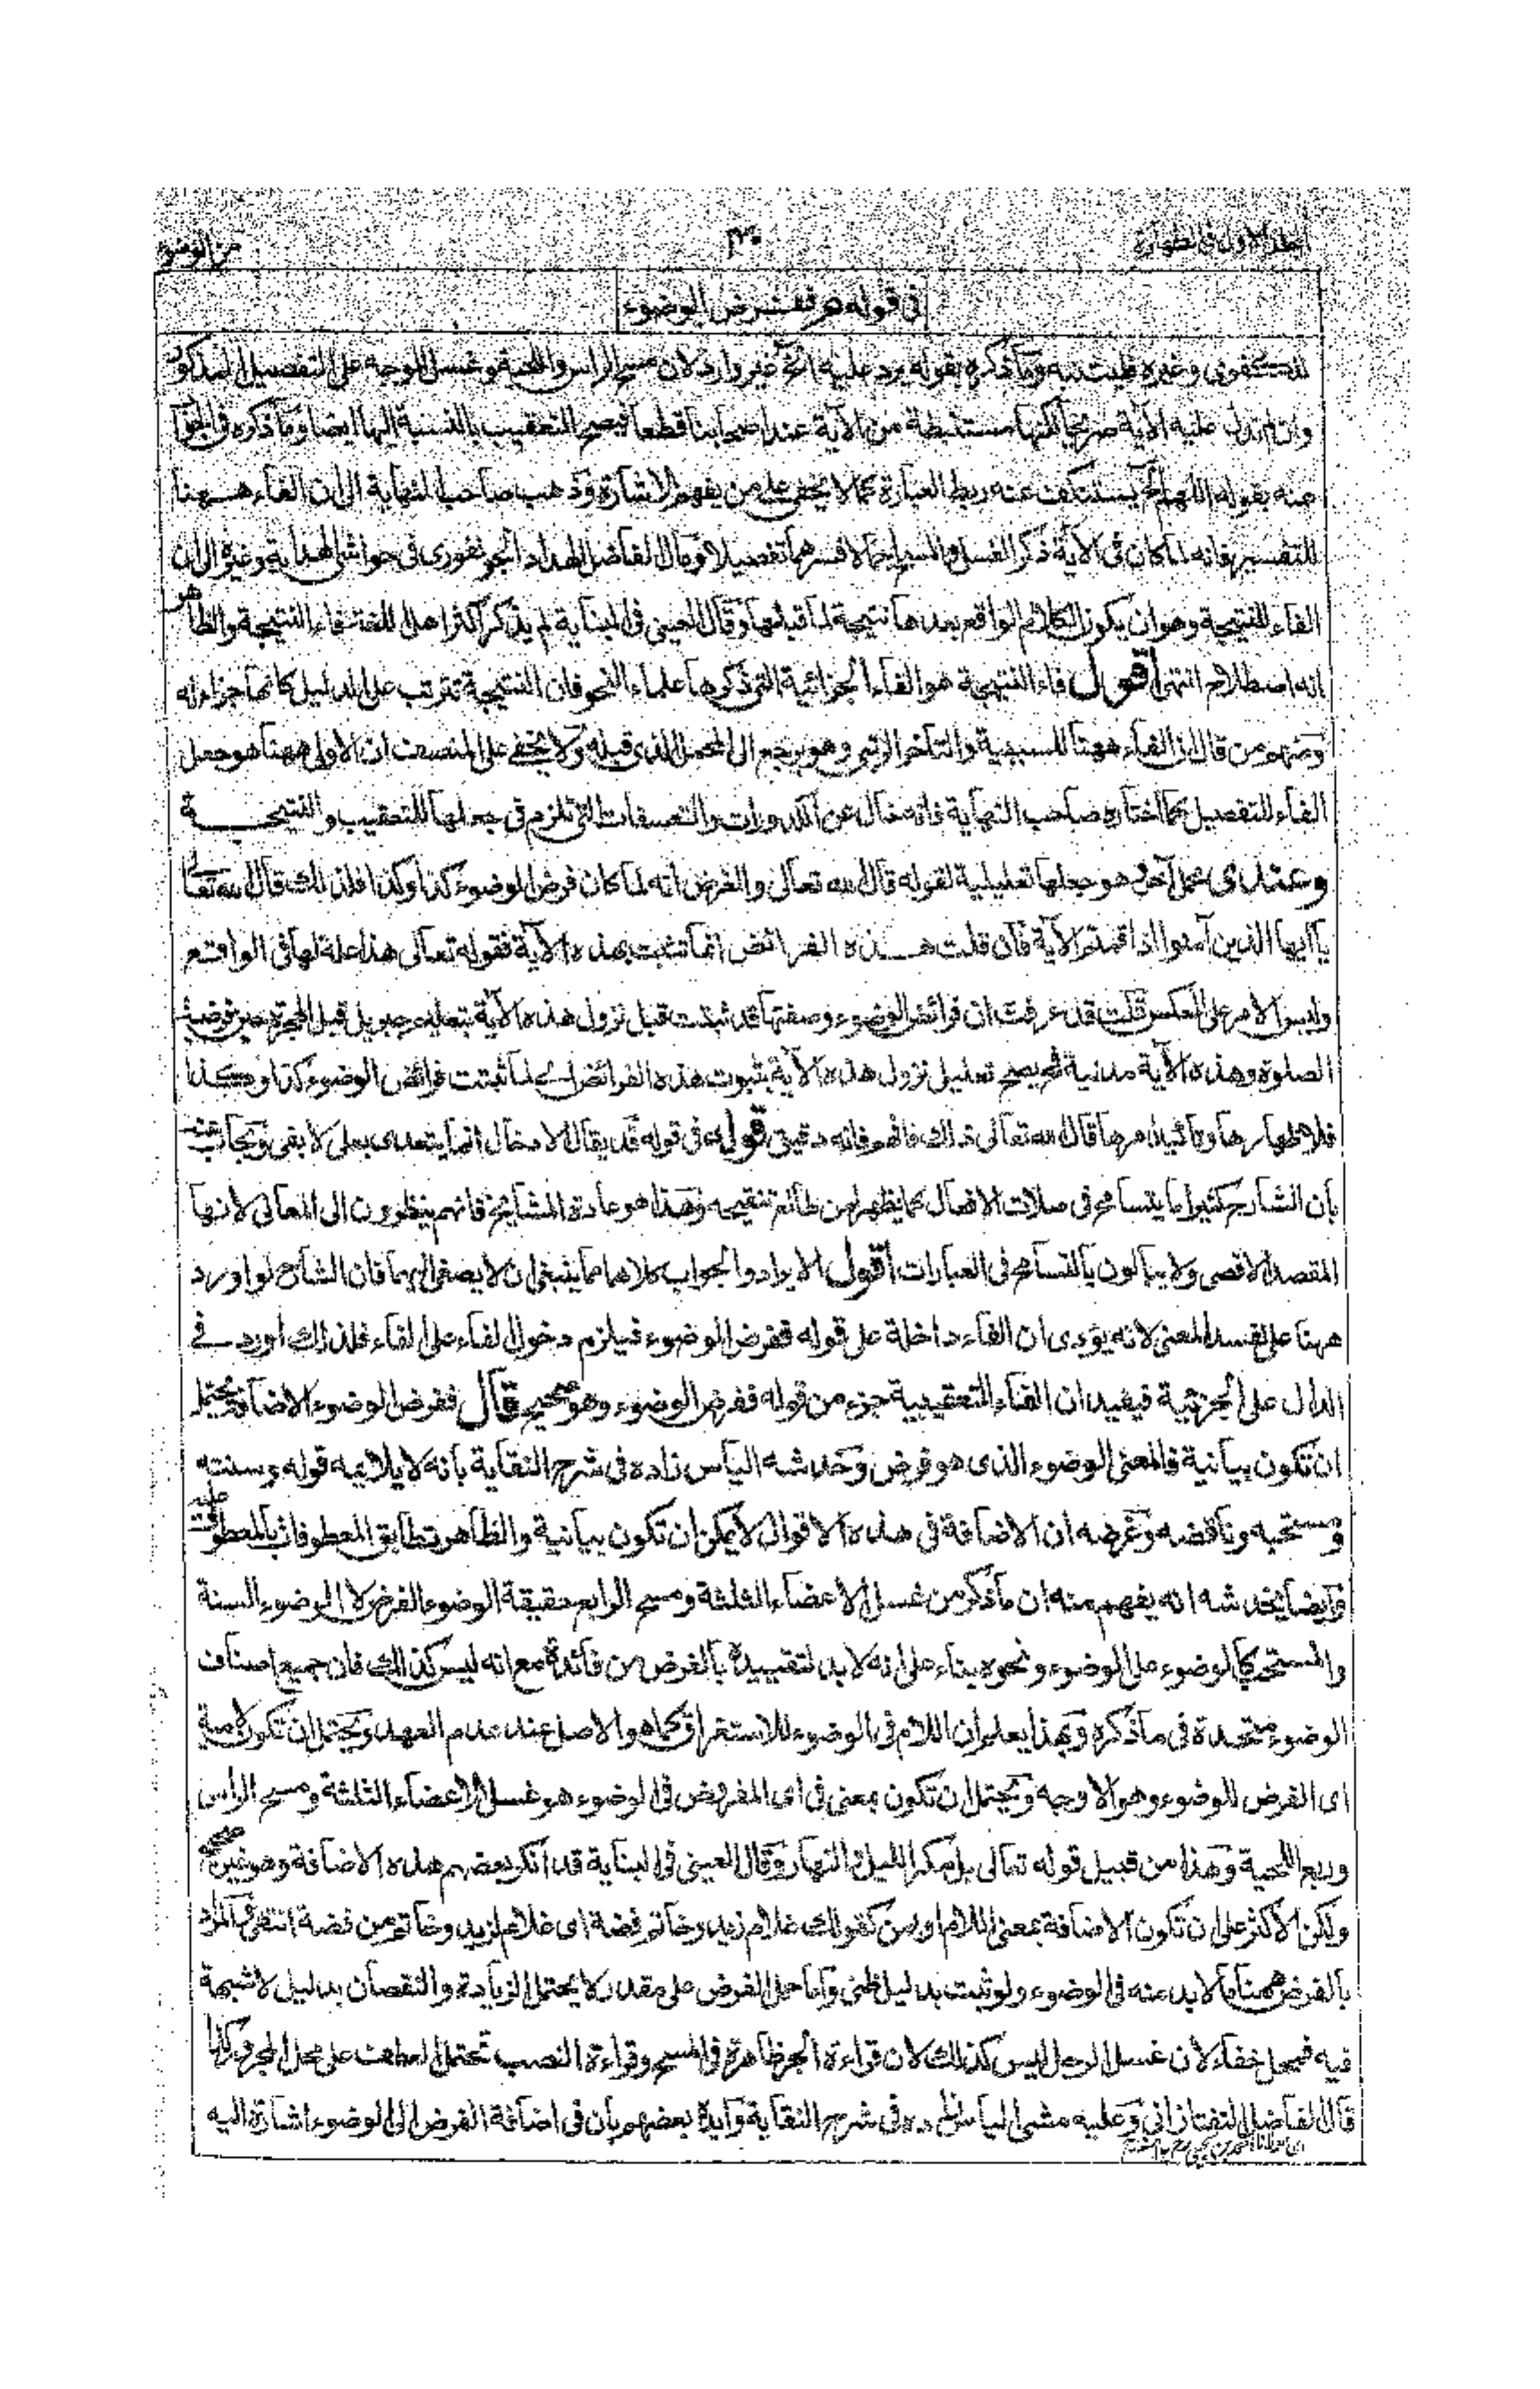 الجلد الاول فى الطهارة
٣٠
من الوضوء
فى قوله ففرض الوضوء
للكفوى وغيره فليتنبه وما ذكره بقوله يرد عليه الخ غير وارد لان مسح الراس واللحية وغسل الوجه على التفصيل المذكور
وان لم تدل عليه الآية صريحا لكنها مستنبطة من الآية عند اصحابنا قطعا فيصح التعقيب بالنسبة اليها ايضا وما ذكره فى الجواب
عنه بقوله اللهم الخ يستنكف عنه ربط العبارة كما لا يخفى على من يفهم الاشارة وذهب صاحب النهاية الى ان الفاء ههنا
للتفسير فانه لما كان فى الآية ذكر الغسل والمسح اجمالا فسرهما تفصيلا ومال الفاضل الهداد الجونفورى فى حواشى الهداية وغيره الى ان
الفاء للنتيجة وهو ان يكون الكلام الواقع بعدها نتيجة لما قبلها وقال العينى فى البناية لم يذكر اكثر اهل اللغة فاء النتيجة والظاهر
انه اصطلاح انتهى اقول فاء النتيجة هو الفاء الجزائية التى ذكرها علماء النحو فان النتيجة تترتب على الدليل كانها جزاء له
ومنهم من قال ان الفاء ههنا للسببية والتاخر الرتبى وهو يرجع الى المحمل الذى قبله ولا يخفى على المنصف ان الاولى ههنا هو جعل
الفاء للتفصيل كما اختاره صاحب النهاية فانه خال عن الكدورات والتعسفات التى تلزم فى جعلها للتعقيب والنتيجة
وعندى محمل آخر هو جعلها تعليلية لقوله قال الله تعالى والغرض انه لما كان فرض الوضوء كذا وكذا فلذلك قال الله تعالى
يا ايها الذين آمنوا اذا قمتم الآية فان قلت هذه الفرائض انما تثبت بهذه الآية فقوله تعالى هذا علة لها فى الواقع
وليس الامر على العكس قلت قد عرفت ان فرائض الوضوء وصفتها قد ثبتت قبل نزول هذه الآية بتعليم جبريل قبل الهجرة حين فرضية
الصلوة وهذه الآية مدنية فيصح تعليل نزول هذه الآية بثبوت هذه الفرائض اى لما ثبتت فرائض الوضوء كذا وكذا
فلاظهارها وتاكيد امرها قال الله تعالى ذلك فافهم فانه دقيق قوله فى قوله قد يقال الادخال انما يتعدى بعلى لا بفى ويجاب عنه
بان الشارح كثيرا ما يتسامح فى صلات الافعال كما يظهر لمن طالع تنقيحه وهذا هو عادة المشايخ فانهم ينظرون الى المعانى لانها
المقصد الاقصى ولا يبالون بالتسامح فى العبارات اقول الايراد والجواب كلاهما مما ينبغى ان لا يصغى اليهما فان الشارح لو اورد
ههنا على لفسد المعنى لانه يؤدى ان الفاء داخلة على قوله ففرض الوضوء فيلزم دخول الفاء على الفاء فلذلك اورد فى
الدال على الجزئية فيفيد ان الفاء التعقيبية جزء من قوله ففرض الوضوء وهو صحيح قال ففرض الوضوء الاضافة يحتمل
ان تكون بيانية فالمعنى الوضوء الذى هو فرض وخدشه الياس زاده فى شرح النقاية بانه لا يلايمه قوله وسنته
ومستحبه وناقضه وغرضه ان الاضافة فى هذه الاقوال لا يمكن ان تكون بيانية والظاهر تطابق المعطوفات بالمعطوف عليه
وايضا يخدشه انه يفهم منه ان ما ذكر من غسل الاعضاء الثلثة ومسح الرابع حقيقة الوضوء الفرض لا الوضوء السنة
والمستحب كالوضوء على الوضوء ونحوه بناء على انه لا بد لتقييده بالفرض من فائدة مع انه ليس كذلك فان جميع اصناف
الوضوء متحدة فى ما ذكره وبهذا يعلم ان اللام فى الوضوء للاستغراق كما هو الاصل عند عدم العهد ويحتمل ان تكون لامية
اى الفرض للوضوء وهو الاوجه ويحتمل ان تكون بمعنى فى اى المفروض فى الوضوء هو غسل الاعضاء الثلثة ومسح الراس
وربع اللحية وهذا من قبيل قوله تعالى بل مكر الليل والنهار وقال العينى فى البناية قد انكر بعضهم هذه الاضافة وهو غير صحيح
ولكن الاكثر على ان تكون الاضافة بمعنى اللام او من كقولك غلام زيد وخاتم فضة اى غلام لزيد وخاتم من فضة انتهى والمراد
بالفرض ههنا ما لا بد عنه فى الوضوء ولو ثبت بدليل ظنى واما حمل الفرض على مقدر لا يحتمل الزيادة والنقصان بدليل لا شبهة
فيه فمحل خفاء لان غسل الرجل ليس كذلك لان قراءة الجر ظاهرة فى المسح وقراءة النصب تحتمل العطف على محل المجرور كذا
قال الفاضل التفتازانى وعليه مشى الياس زاده فى شرح النقاية وايده بعضهم بان فى اضافة الفرض الى الوضوء اشارة اليه